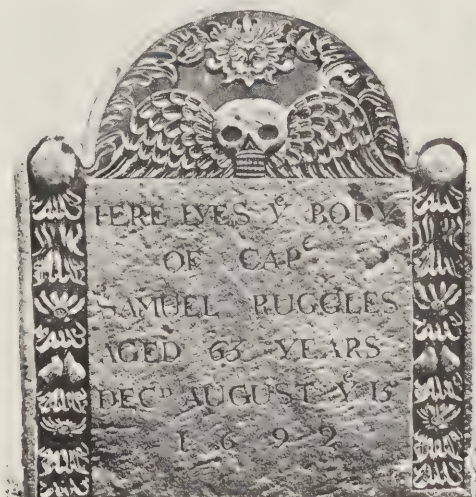 HERE LYES yᵉ BODY
OF CAPᵗ
SAMUEL RUGGLES
AGED 63 YEARS
DECᴰ AUGUST Yᵉ 15
1692